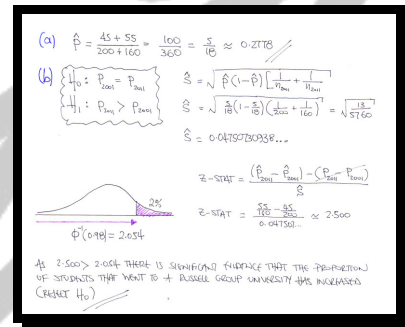 (a) p̂ = (45 + 55)/(200 + 160) = 100/360 = 5/18 ≈ 0.2778
(b) H₀ : P₂₀₀₁ = P₂₀₁₁
H₁ : P₂₀₁₁ > P₂₀₀₁
Ŝ = √(p̂(1-p̂)[1/n₂₀₀₁ + 1/n₂₀₁₁])
Ŝ = √(5/18(1-5/18)(1/200 + 1/160)) = √(13/5760)
Ŝ = 0.04750730938...
Z-STAT = ((p̂₂₀₁₁ - p̂₂₀₀₁) - (P₂₀₁₁ - P₂₀₀₁))/Ŝ
2%
Z-STAT = (55/160 - 45/200)/0.047507... ≈ 2.500
Φ⁻¹(0.98) = 2.054
AS 2.500 > 2.054 THERE IS SIGNIFICANT EVIDENCE THAT THE PROPORTION
OF STUDENTS THAT WENT TO A RUSSELL GROUP UNIVERSITY HAS INCREASED
(REJECT H₀)